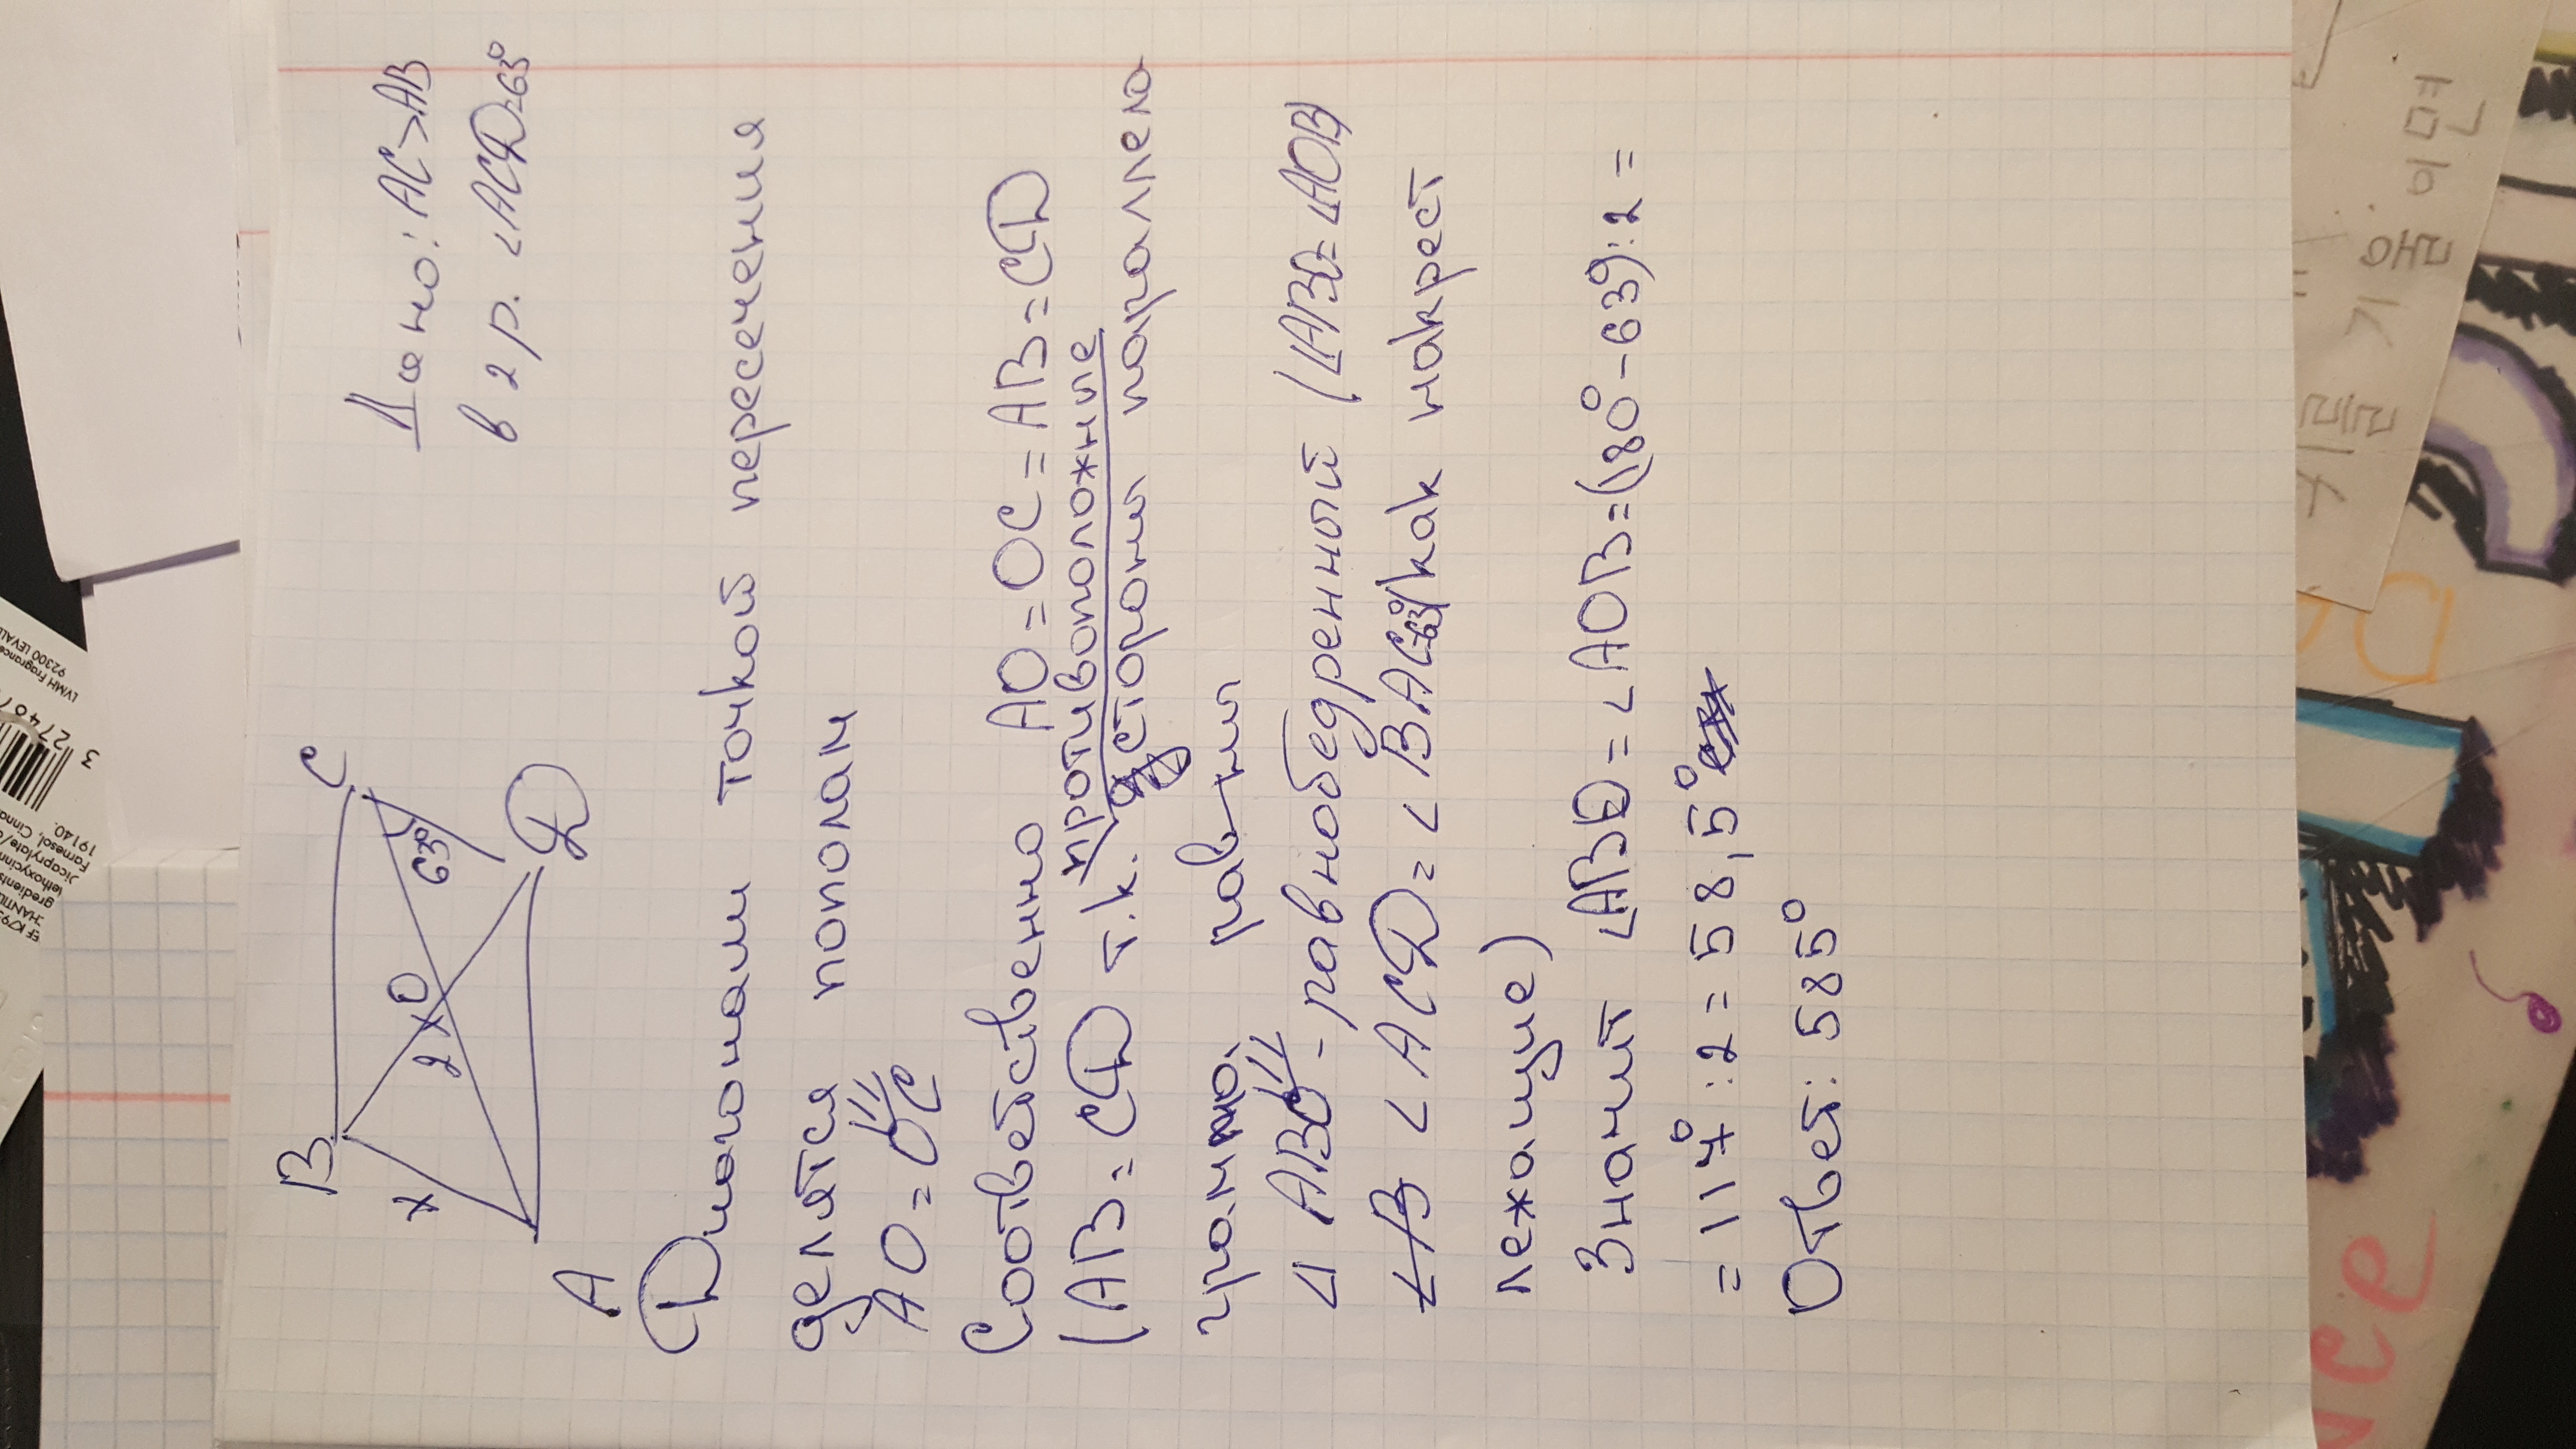 EF K793
CHANTIL
gredients
lethoxycinn
Dicaprylate/
Farnesol, Cinna
19140.
3 27407
LVMH Fragrance
92300 LEVALL
B
C
x
2x
O
63°
A
D
Дано: AC>AB
в 2 р. ∠ACD=63°
Диагонали точкой пересечения
делятся пополам
AO=OC
Соответственно AO=OC=AB=CD
(AB=CD т.к. противоположные
стороны параллело
грамма равны
△ ABO - равнобедренный (∠ABO=∠AOB)
∠B ∠ACD=∠BAC=63°(как накрест
лежащие)
Значит ∠ABO=∠AOB=(180°-63°):2=
=117°:2=58,5°
Ответ: 585°
nce
기울
이면